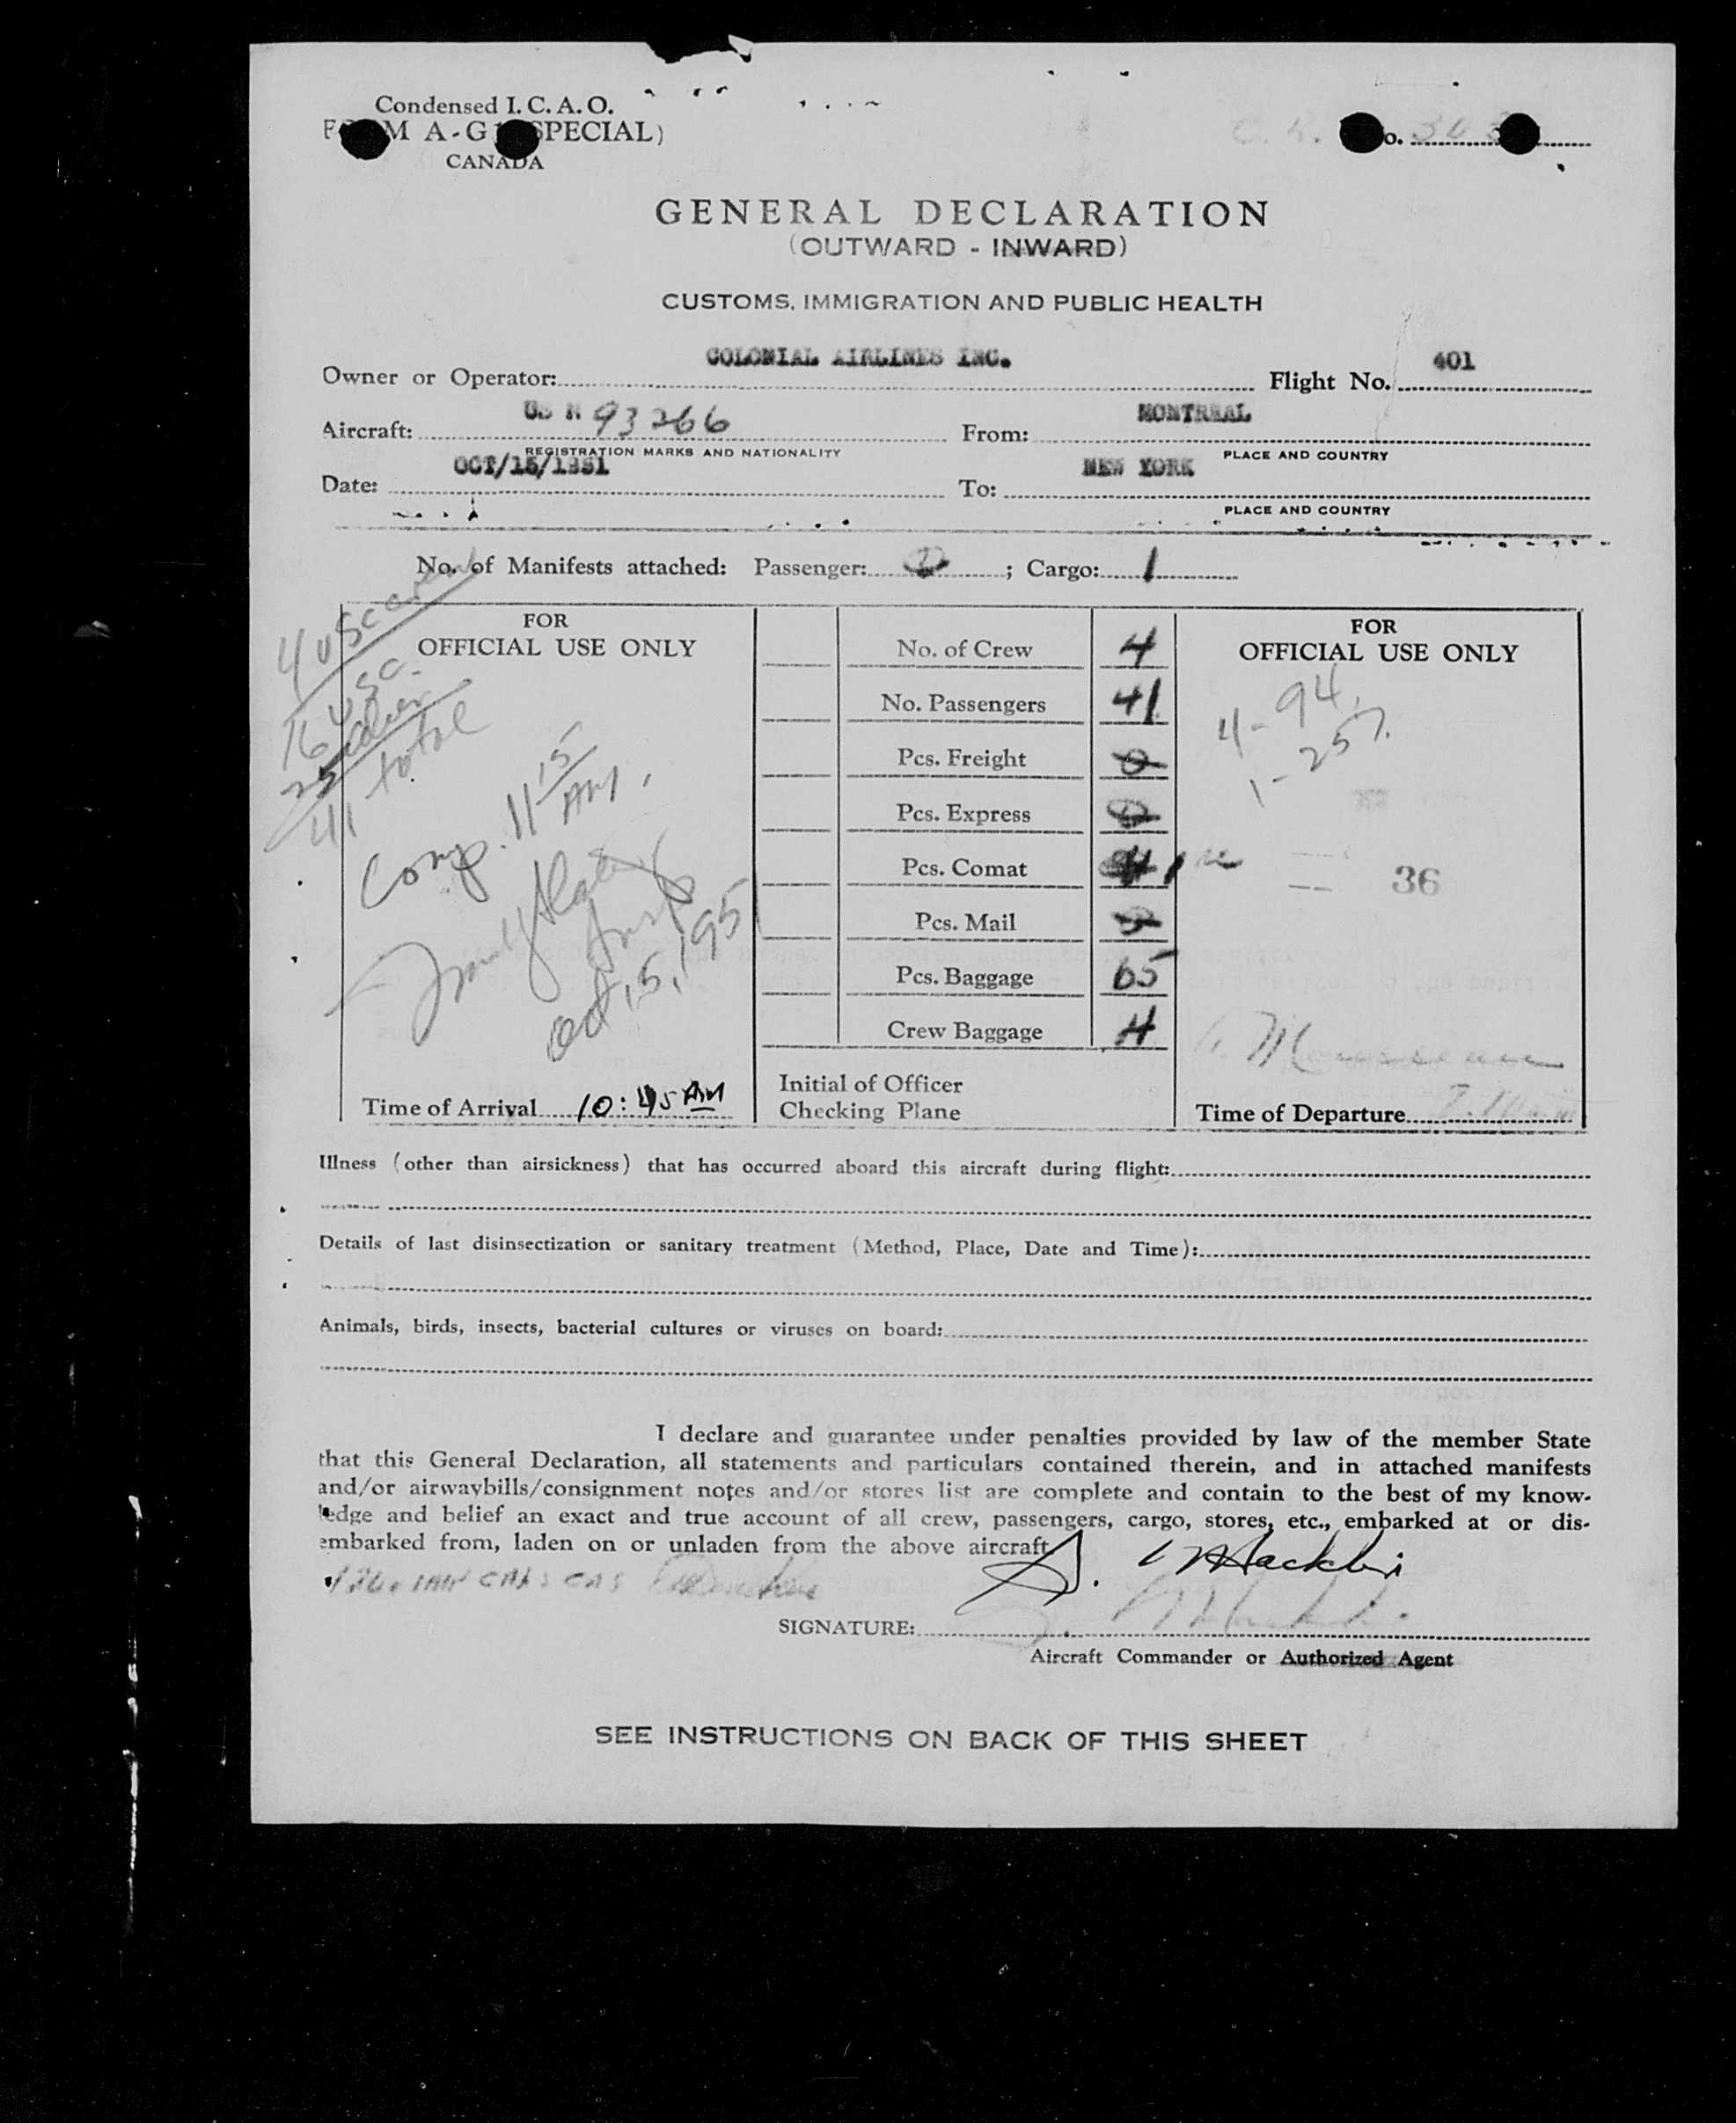 Condensed I. C. A. O.
M A-G SPECIAL)
CANADA
GENERAL DECLARATION
(OUTWARD - INWARD)
CUSTOMS, IMMIGRATION AND PUBLIC HEALTH
Owner or Operator: COLONIAL AIRLINES INC. Flight No. 401
Aircraft: US N 93266 From: MONTREAL
REGISTRATION MARKS AND NATIONALITY PLACE AND COUNTRY
Date: OCT/15/1951 To: NEW YORK
PLACE AND COUNTRY
No. of Manifests attached: Passenger: ; Cargo: 1
FOR
OFFICIAL USE ONLY
16 USC.
25
41 total
Comp. 11 15 AM.
Insp
Oct 15, 1951
Time of Arrival 10:45 AM
No. of Crew 4
No. Passengers 41
Pcs. Freight 0
Pcs. Express 0
Pcs. Comat
Pcs. Mail
Pcs. Baggage 65
Crew Baggage 4
Initial of Officer
Checking Plane
FOR
OFFICIAL USE ONLY
4 - 94.
1 - 257.
36
Time of Departure
Illness (other than airsickness) that has occurred aboard this aircraft during flight:
Details of last disinsectization or sanitary treatment (Method, Place, Date and Time):
Animals, birds, insects, bacterial cultures or viruses on board:
I declare and guarantee under penalties provided by law of the member State
that this General Declaration, all statements and particulars contained therein, and in attached manifests
and/or airwaybills/consignment notes and/or stores list are complete and contain to the best of my know-
ledge and belief an exact and true account of all crew, passengers, cargo, stores, etc., embarked at or dis-
embarked from, laden on or unladen from the above aircraft
SIGNATURE:
Aircraft Commander or Authorized Agent
SEE INSTRUCTIONS ON BACK OF THIS SHEET